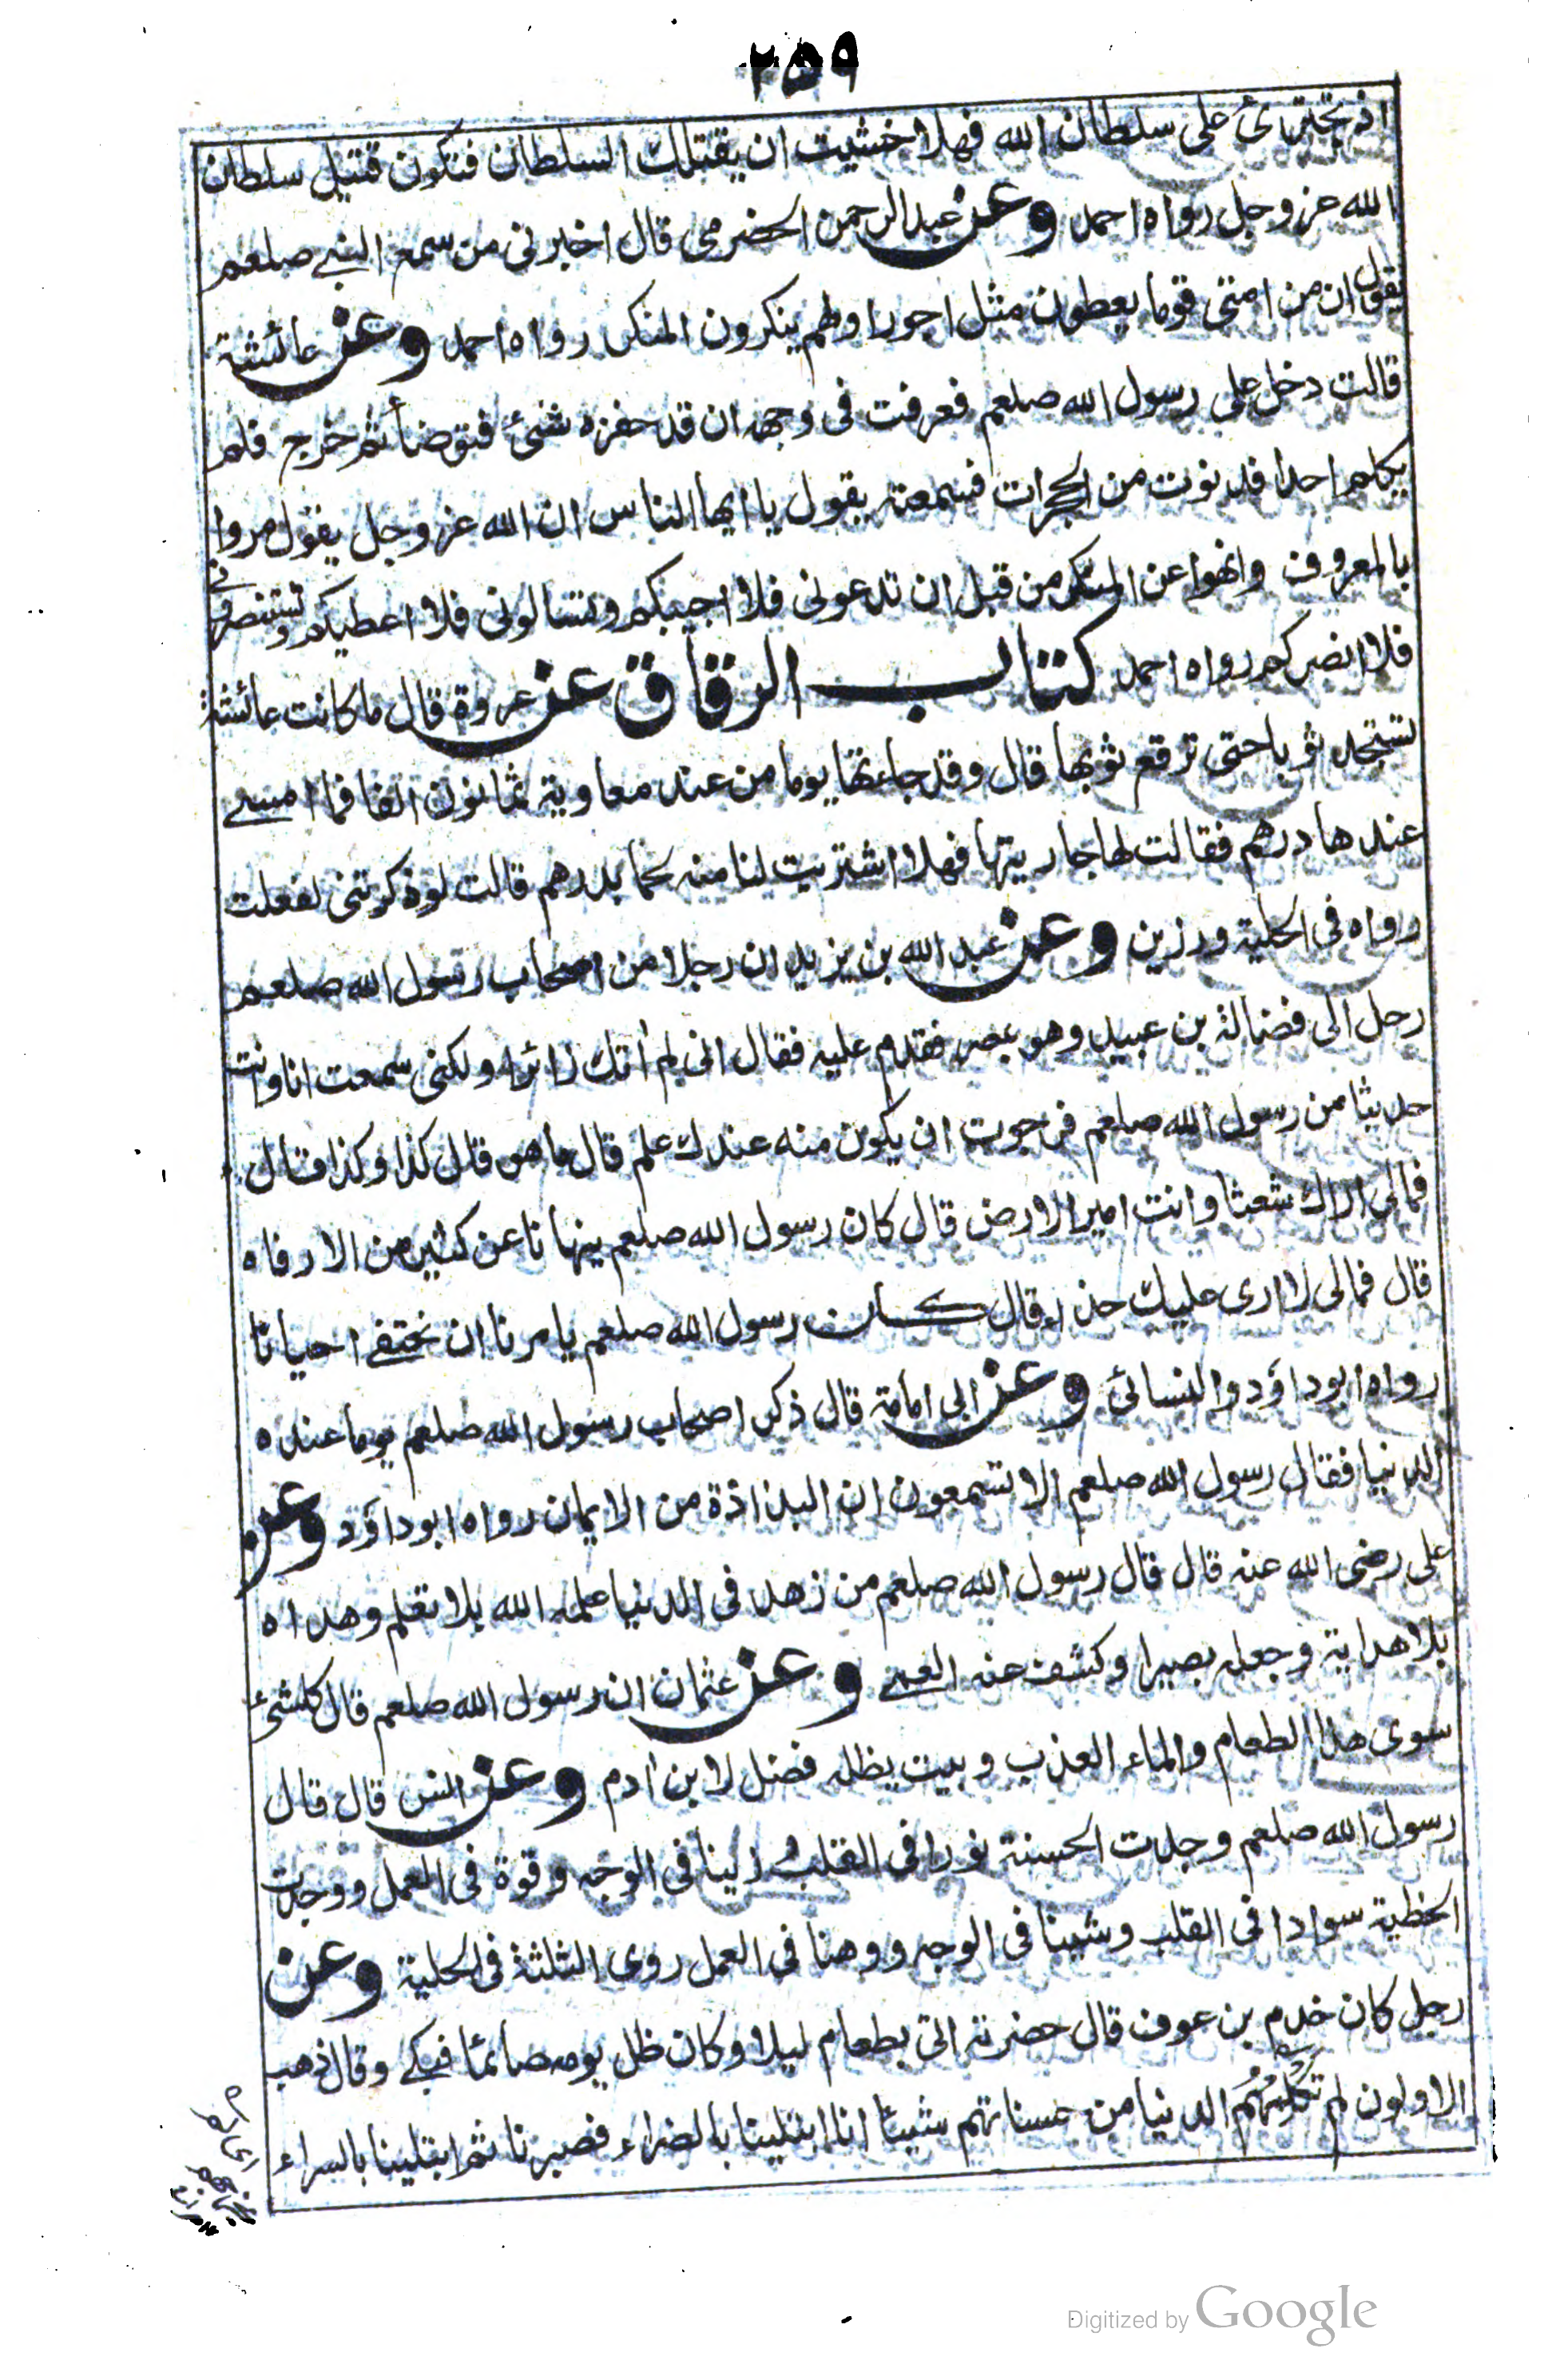 ٢٥٩
اذ تجترئ على سلطان الله فهلا خشيت ان يقتلك السلطان فتكون قتيل سلطان
الله عز وجل رواه احمد وعن عبد الرحمن الحضرمى قال اخبرنى من سمع النبي صلعم
يقول ان من امتى قوما يعطون مثل اجور اولهم ينكرون المنكر رواه احمد وعن عائشة
قالت دخل على رسول الله صلعم فعرفت فى وجهه ان قد حفزه شئ فتوضأ ثم خرج فلم
يكلم احدا فدنوت من الحجرات فسمعته يقول يا ايها الناس ان الله عز وجل يقول مروا
بالمعروف وانهوا عن المنكر من قبل ان تدعونى فلا اجيبكم وتسالونى فلا اعطيكم وتستنصرونى
فلا انصركم رواه احمد كتاب الرقاق عن عروة قال ما كانت عائشة
تستجد ثوبا حتى ترقع ثوبها قال وقد جاءتها يوما من عند معاوية ثمانون الفا فما امسى
عندها درهم فقالت لها جاريتها فهلا اشتريت لنا منه لحما بدرهم قالت لو ذكرتنى لفعلت
رواه فى الحلية ورزين وعن عبد الله بن يزيد ان رجلا من اصحاب رسول الله صلعم
رحل الى فضالة بن عبيد وهو بمصر فقدم عليه فقال انى لم أتك زائرا ولكنى سمعت انا وانت
حديثا من رسول الله صلعم فرجوت ان يكون منه عندك علم قال ما هو قال كذا وكذا قال
فمالى اراك شعثا وانت امير الارض قال كان رسول الله صلعم ينهانا عن كثير من الارفاه
قال فمالى لا ارى عليك حذاء قال كان رسول الله صلعم يامرنا ان نحتفى احيانا
رواه ابو داؤد والنسائى وعن ابى امامة قال ذكر اصحاب رسول الله صلعم يوما عنده
الدنيا فقال رسول الله صلعم الا تسمعون ان البذاذة من الايمان رواه ابو داؤد وعن
على رضى الله عنه قال قال رسول الله صلعم من زهد فى الدنيا علمه الله بلا تعلم وهداه
بلا هداية وجعله بصيرا وكشف عنه العمى وعن عثمان ان رسول الله صلعم قال كلشئ
سوى هذا الطعام والماء العذب وبيت يظله فضل لابن ادم وعن انس قال قال
رسول الله صلعم وجدت الحسنة نورا فى القلب و زينا فى الوجه وقوة فى العمل ووجدت
الخطية سوادا فى القلب وشينا فى الوجه ووهنا فى العمل روى الثلثة فى الحلية وعن
رجل كان خدم بن عوف قال حضرته اتى بطعام ليلا وكان ظل يومه صائما فبكى وقال ذهب
الاولون لم تكلمهم الدنيا من حسناتهم شيئا انا ابتلينا بالضراء فصبرنا ثم ابتلينا بالسراء
Digitized by Google